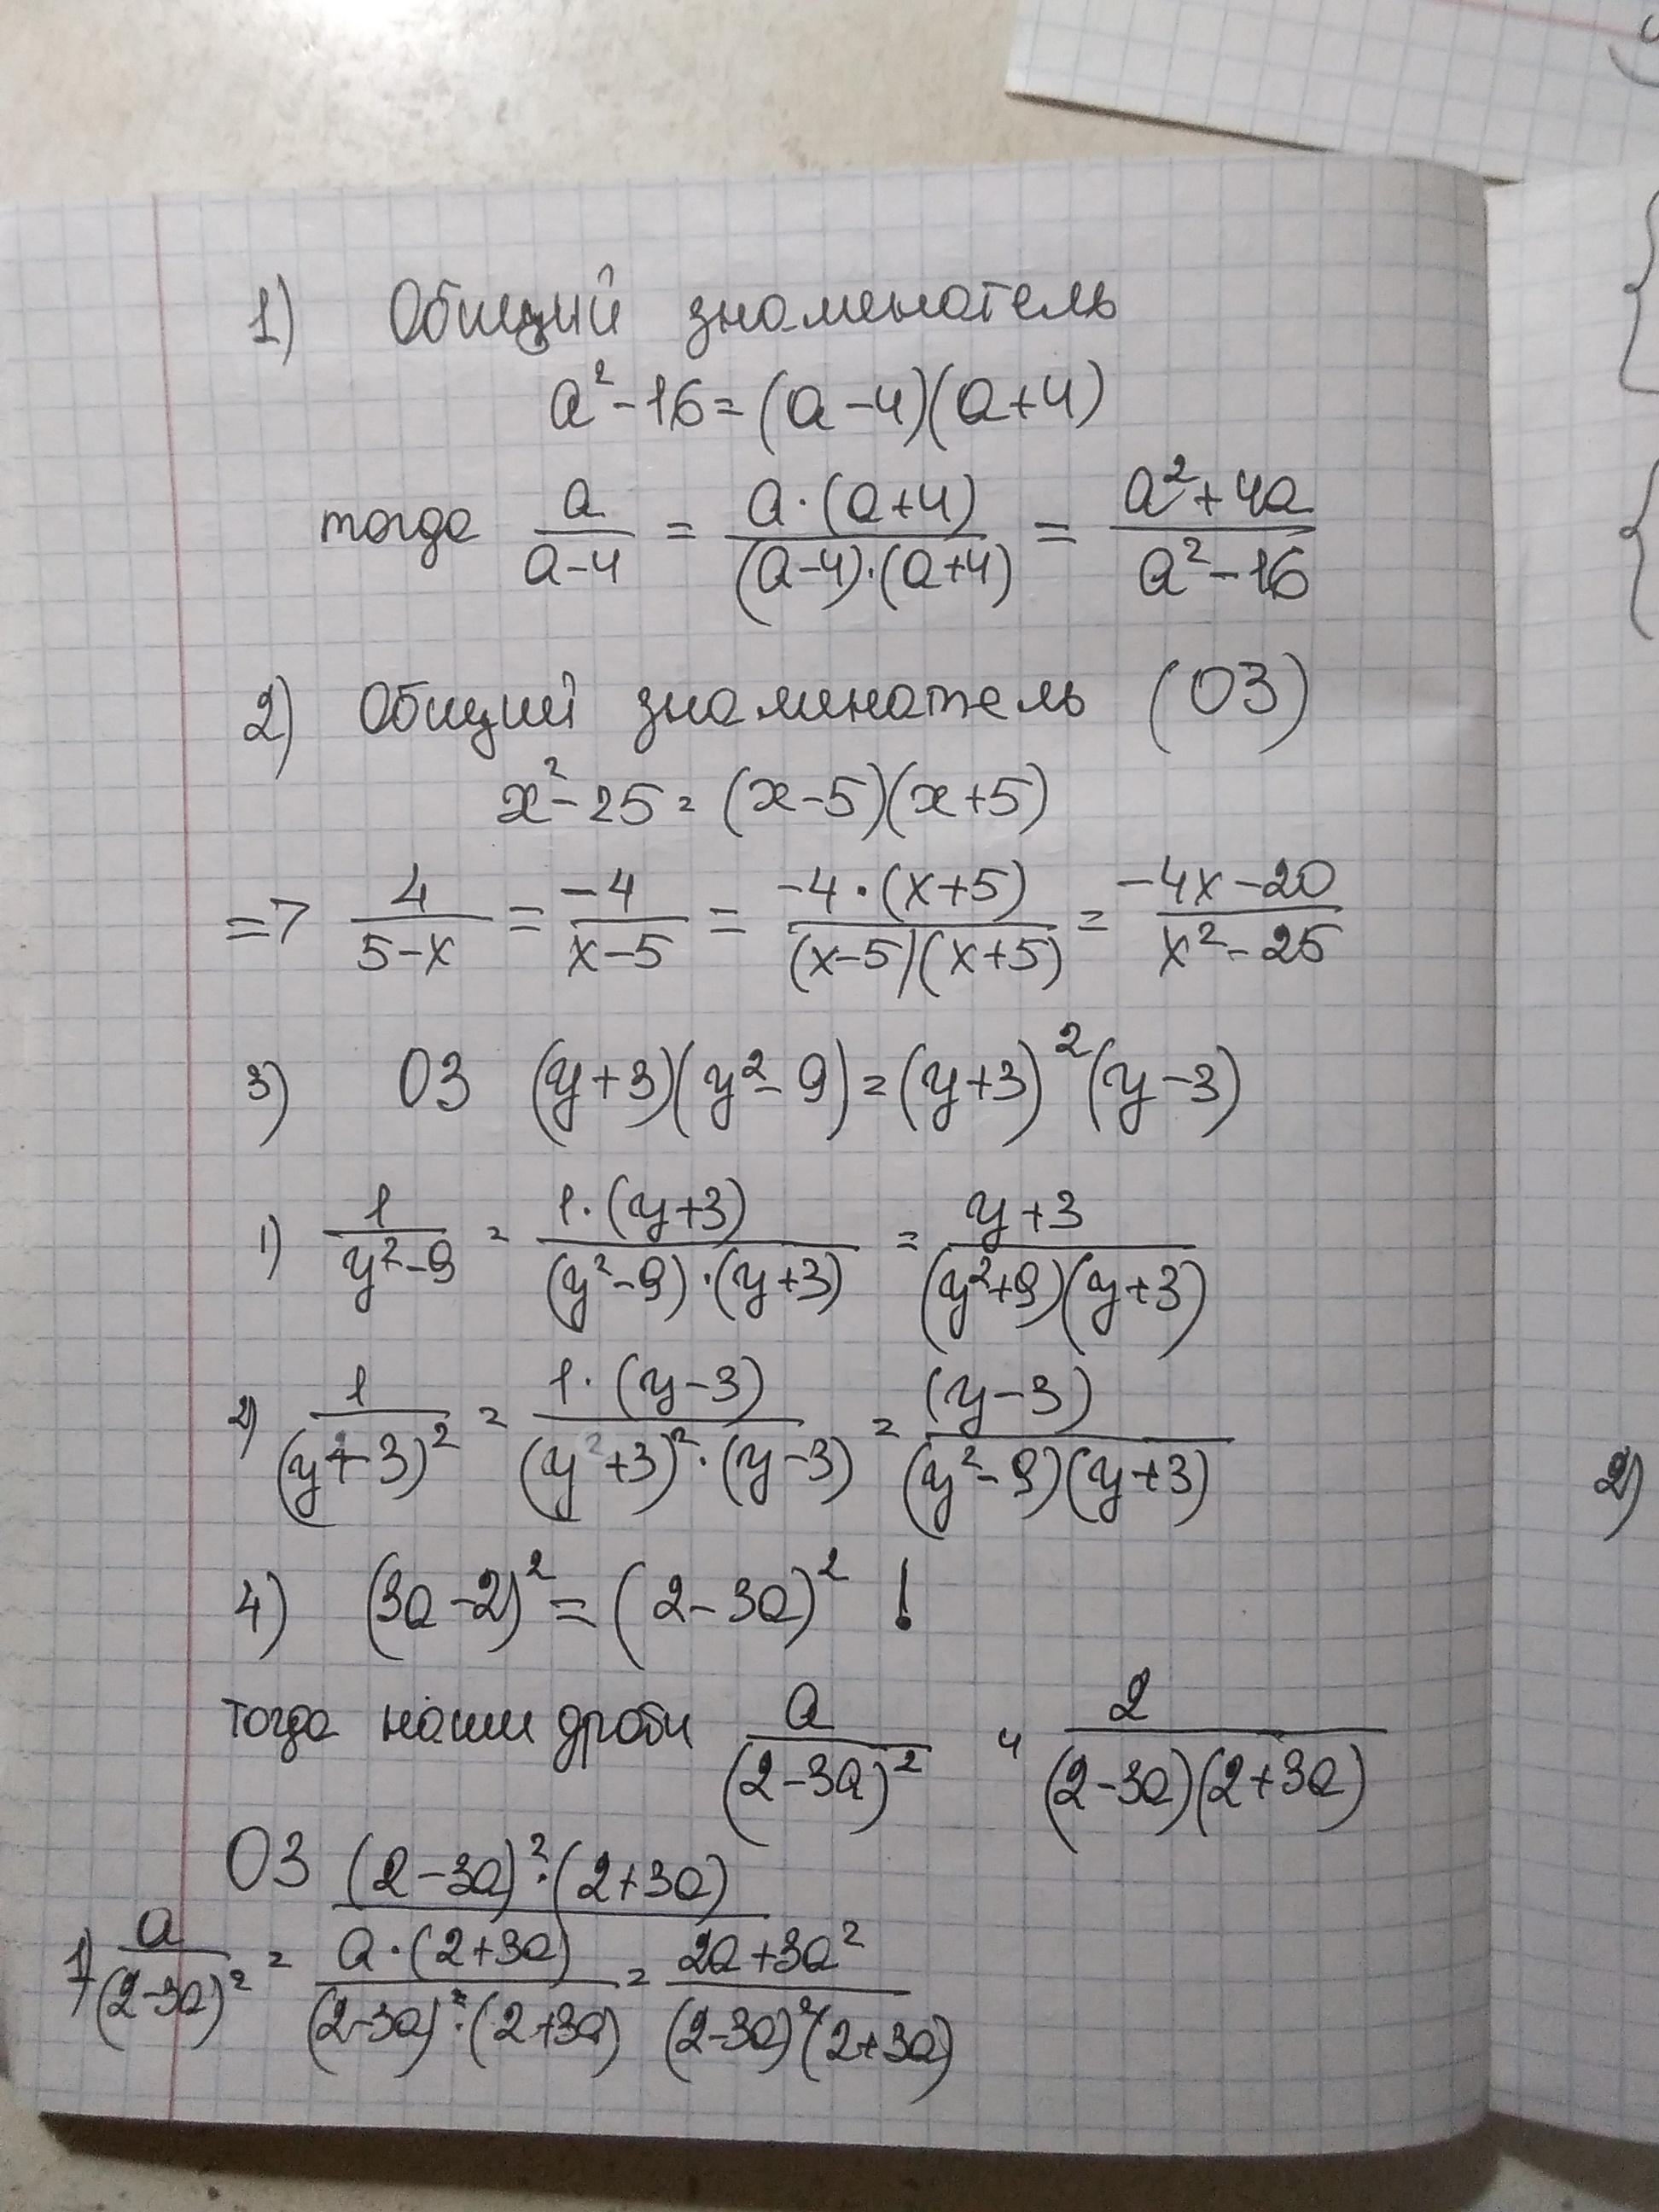 1) Общий знаменатель
a² - 16 = (a - 4)(a + 4)
тогда a/(a - 4) = a·(a + 4)/((a - 4)·(a + 4)) = (a² + 4a)/(a² - 16)
2) Общий знаминатель (ОЗ)
x² - 25 = (x - 5)(x + 5)
=> 4/(5 - x) = -4/(x - 5) = -4·(x + 5)/((x - 5)(x + 5)) = (-4x - 20)/(x² - 25)
3) ОЗ (y + 3)(y² - 9) = (y + 3)²(y - 3)
1) 1/(y² - 9) = 1·(y + 3)/((y² - 9)·(y + 3)) = (y + 3)/((y² + 9)(y + 3))
2) 1/(y + 3)² = 1·(y - 3)/((y + 3)²·(y - 3)) = (y - 3)/((y² - 9)(y + 3))
4) (3a - 2)² = (2 - 3a)² !
тогда наши дроби a/(2 - 3a)² и 2/((2 - 3a)(2 + 3a))
ОЗ (2 - 3a)²·(2 + 3a)
1) a/(2 - 3a)² = a·(2 + 3a)/((2 - 3a)²·(2 + 3a)) = (2a + 3a²)/((2 - 3a)²(2 + 3a))
2)